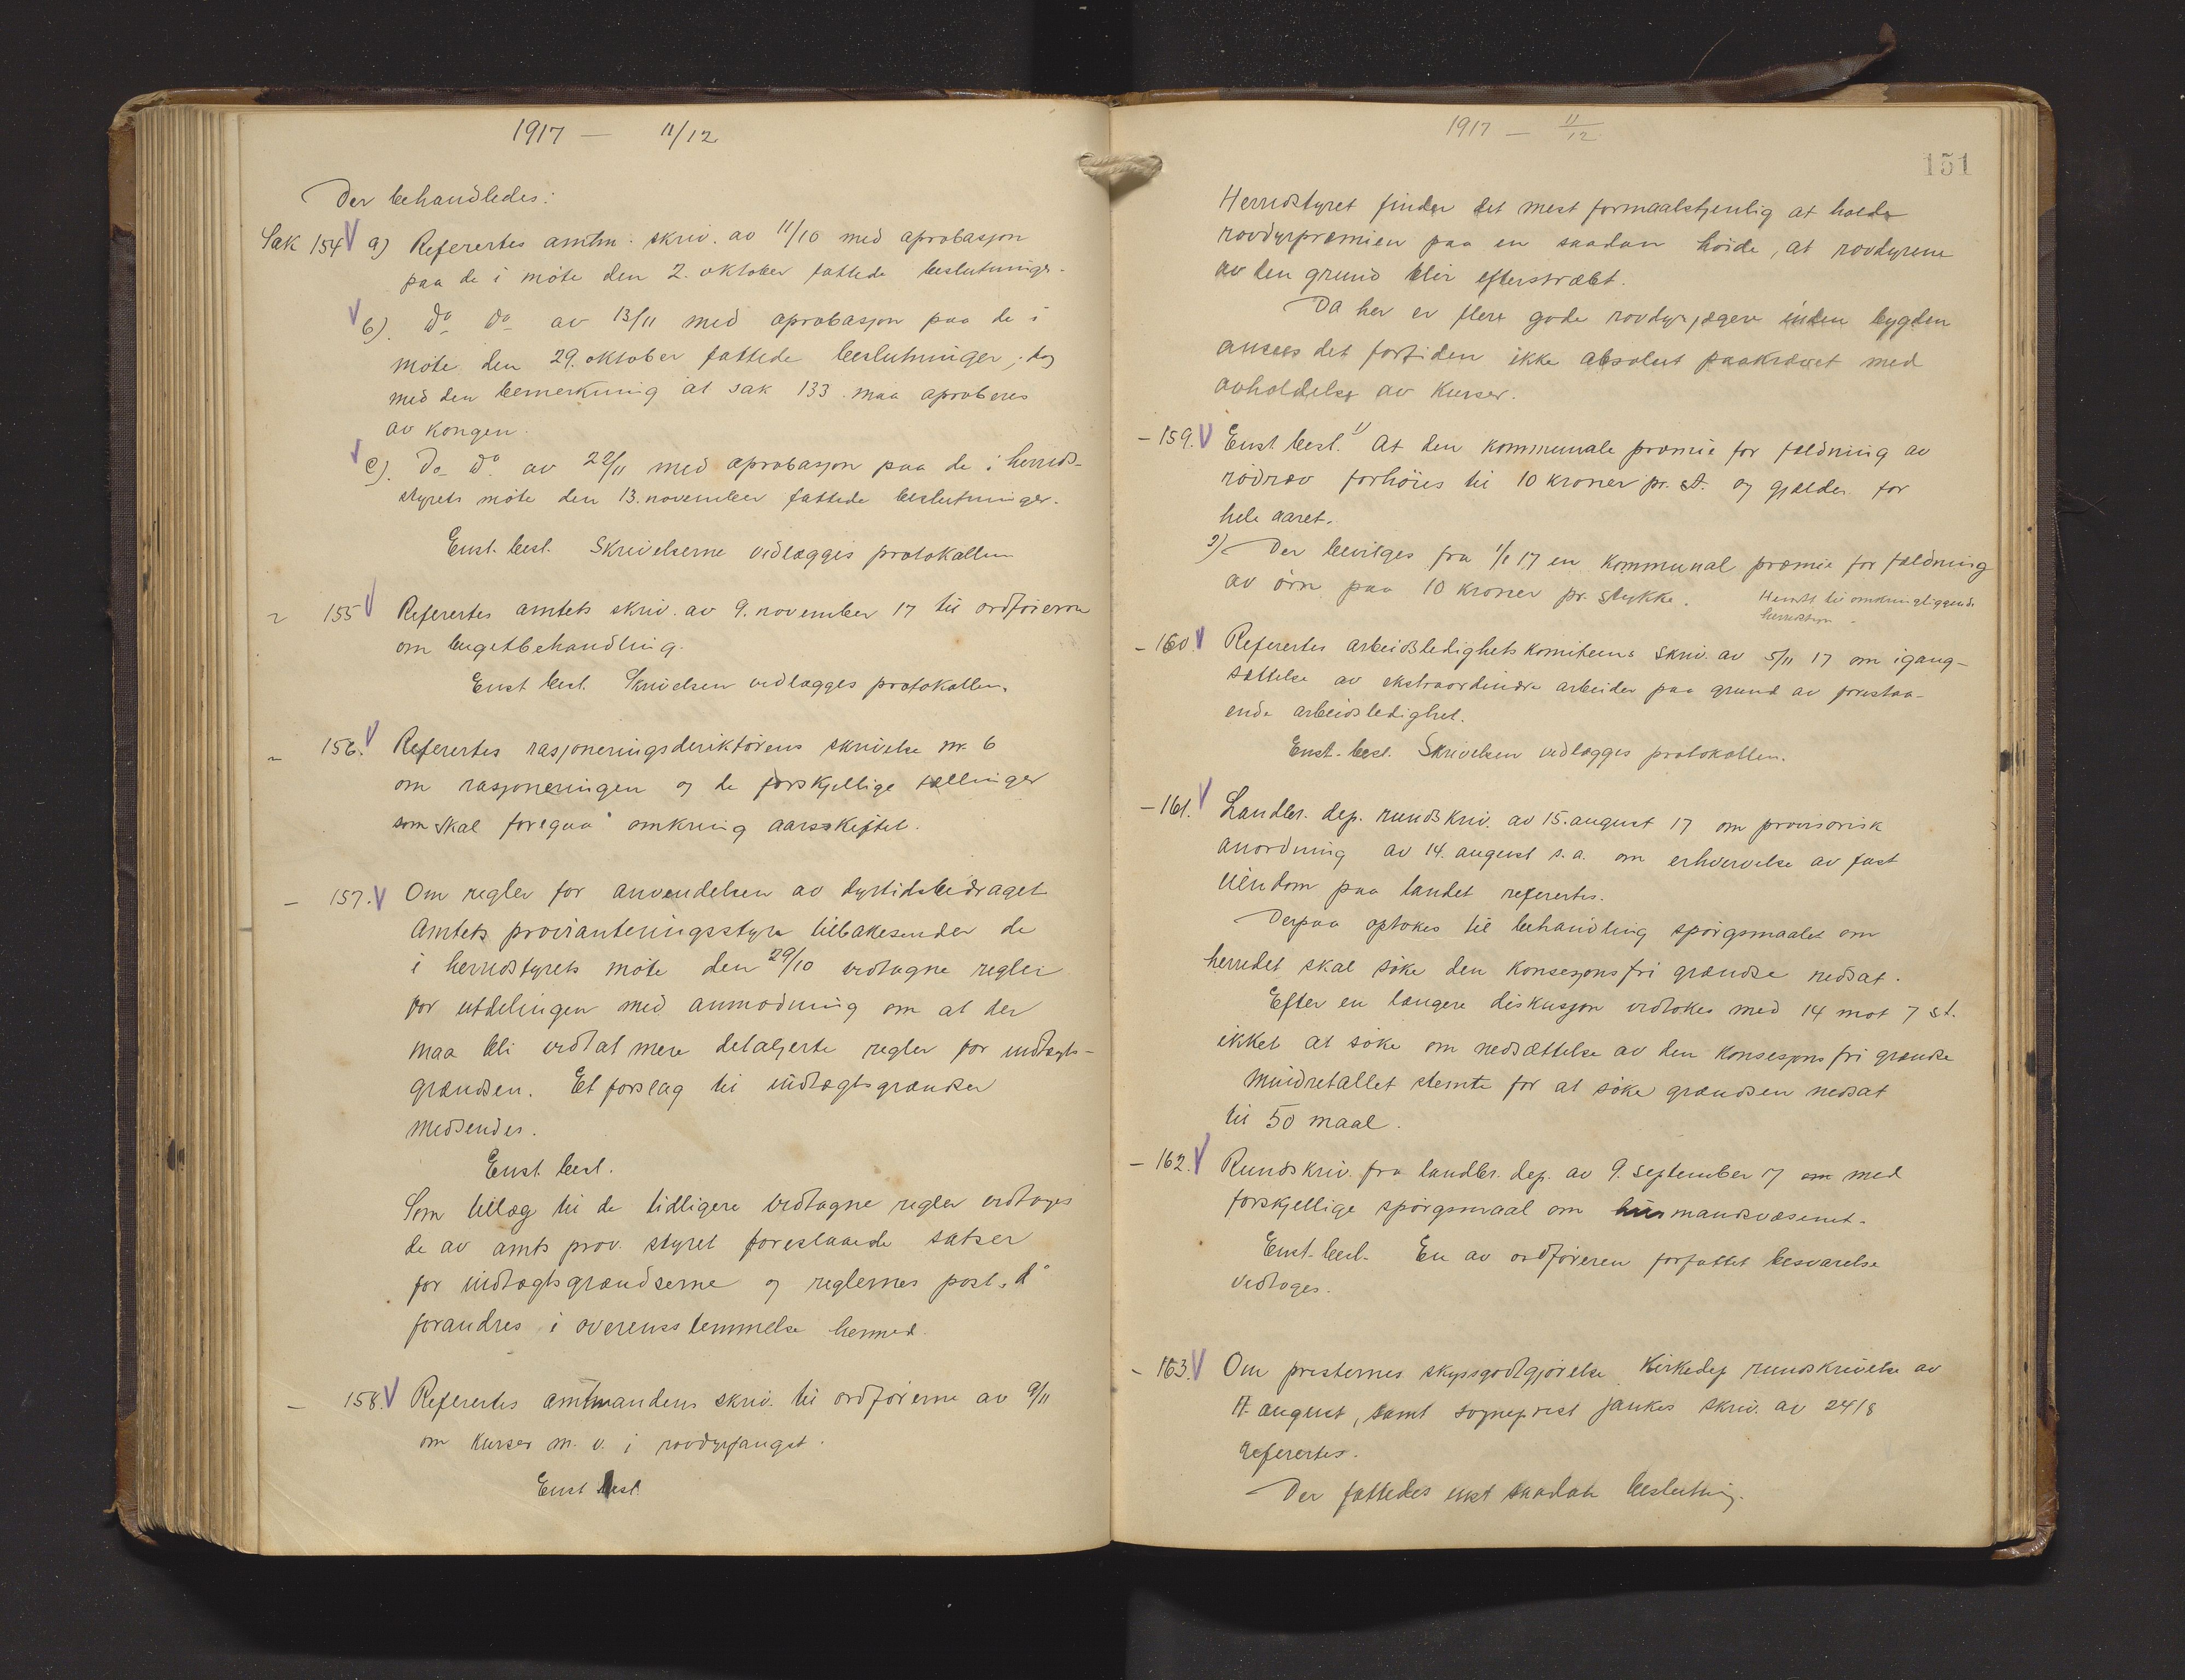 1917 — 11/12
Der behandledes:
Sak 154 a) Referertes amtm. skriv. av 11/10 med aprobasjon
paa de i möte den 2. oktober fattede beslutninger.
b). do do av 13/11 med aprobasjon paa de i
möte den 29. oktober fattede beslutninger, dog
med den bemerkning at sak 133 maa aproberes
av kongen.
c). do do av 22/11 med aprobasjon paa de i herreds-
styrets möte den 13. november fattede beslutninger.
Enst. besl. Skrivelserne vedlægges protokollen
155 Referertes amtets skriv. av 9. november 17 til ordförerne
om bugetbehandling.
Enst besl. Skrivelsen vedlægges protokollen.
156. Referertes rasjoneringsdirektörens skrivelse nr. 6
om rasjoneringen og de forskjellige tællinger
som skal foregaa omkring aarsskiftet.
— 157. Om regler for anvendelsen av dyrtidsbidraget
Amtets provianteringsstyre tilbakesender de
i herredstyrets möte den 29/10 vedtagne regler
for utdelingen med anmodning om at der
maa bli vedtat mere detaljerte regler for indtægts-
grændsen. Et forslag til indtægtsgrændser
medsendes.
Enst. besl.
Som tillæg til de tidligere vedtagne regler vedtages
de av amts prov. styret foreslaaede satser
for indtægtsgrændserne og reglernes post „d"
forandres i overensstemmelse hermed.
— 158. Referertes amtmandens skriv. til ordförerne av 9/11
om kurser m. v. i rovdyrfangst.
Enst besl.
1917 — 11/12.
151
Herredstyret finder det mest formaalstjenlig at holde
rovdyrpræmien paa en saadan höide, at rovdyrene
av den grund blir efterstræbt.
Da her er flere gode rovdyrjægere inden bygden
ansees det fortiden ikke absolut paakrævet med
avholdelse av kurser.
— 159. Enst besl. 1) At den kommunale præmie for fældning av
rödræv forhöies til 10 kroner pr. st. og gjælder for
hele aaret.
2) Der bevilges fra 1/1 17 en kommunal præmie for fældning
av örn paa 10 kroner pr. stykke. Henst. til omkringliggende
herredstyr.
— 160. Referertes arbeidsledighetskomiteens skriv. av 5/11 17 om igang-
sættelse av ekstraordinære arbeider paa grund av forestaa-
ende arbeidsledighet.
Enst. besl. Skrivelsen vedlægges protokollen.
— 161. Landbr. dep. rundskriv. av 15. august 17 om provisorisk
anordning av 14. august s. a. om erhvervelse av fast
eiendom paa landet referertes.
Derpaa optokes til behandling spörgsmaalet om
herredet skal söke den konsesjonsfri grændse nedsat.
Efter en længere diskusjon vedtokes med 14 mot 7 st.
ikket at söke om nedsættelse av den konsesjonsfri grændse
Mindretallet stemte for at söke grændsen nedsat
til 50 maal.
— 162. Rundskriv. fra landbr. dep. av 9. september 17 om med
forskjellige spörgsmaal om husmandsvæsenet.
Enst. besl. En av ordföreren forfattet besvarelse
vedtoges.
— 163. Om presternes skyssgodtgjörelse. Kirkedep rundskrivelse av
17. august, samt sogneprest Jankes skriv. av 24/8
referertes.
Der fattedes enst saadan beslutning.